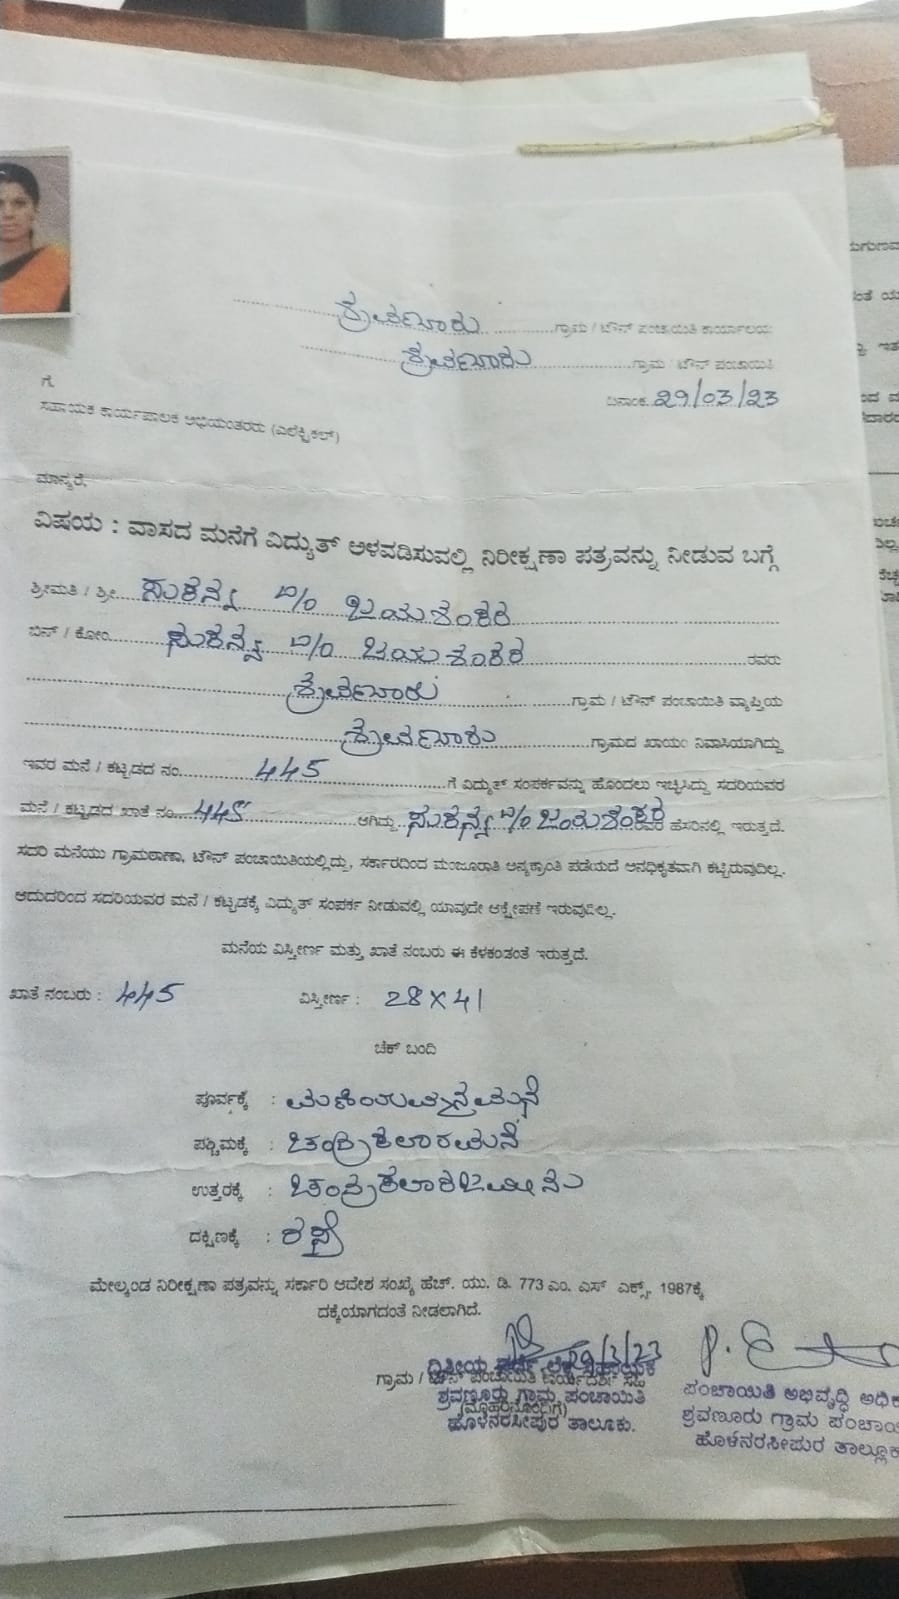 ಶ್ರವಣೂರು ಗ್ರಾಮ / ಟೌನ್ ಪಂಚಾಯಿತಿ ಕಾರ್ಯಾಲಯ
ಶ್ರವಣೂರು ಗ್ರಾಮ / ಟೌನ್ ಪಂಚಾಯಿತಿ
ದಿನಾಂಕ 29/03/23
ಗೆ,
ಸಹಾಯಕ ಕಾರ್ಯಪಾಲಕ ಅಭಿಯಂತರರು (ಎಲೆಕ್ಟ್ರಿಕಲ್)
ಮಾನ್ಯರೆ,
ವಿಷಯ : ವಾಸದ ಮನೆಗೆ ವಿದ್ಯುತ್ ಅಳವಡಿಸುವಲ್ಲಿ ನಿರೀಕ್ಷಣಾ ಪತ್ರವನ್ನು ನೀಡುವ ಬಗ್ಗೆ
ಶ್ರೀಮತಿ / ಶ್ರೀ ಸುಕನ್ಯ D/O ಜಯಶಂಕರ
ಬಿನ್ / ಕೋಂ ಸುಕನ್ಯ D/O ಜಯಶಂಕರ ರವರು
ಶ್ರವಣೂರು ಗ್ರಾಮ / ಟೌನ್ ಪಂಚಾಯಿತಿ ವ್ಯಾಪ್ತಿಯ
ಶ್ರವಣೂರು ಗ್ರಾಮದ ಖಾಯಂ ನಿವಾಸಿಯಾಗಿದ್ದು
ಇವರ ಮನೆ / ಕಟ್ಟಡದ ನಂ. 445 ಗೆ ವಿದ್ಯುತ್ ಸಂಪರ್ಕವನ್ನು ಹೊಂದಲು ಇಚ್ಛಿಸಿದ್ದು ಸದರಿಯವರ
ಮನೆ / ಕಟ್ಟಡದ ಖಾತೆ ನಂ. 445 ಆಗಿದ್ದು ಸುಕನ್ಯ D/O ಜಯಶಂಕರ ರವರ ಹೆಸರಿನಲ್ಲಿ ಇರುತ್ತದೆ.
ಸದರಿ ಮನೆಯು ಗ್ರಾಮಠಾಣಾ, ಟೌನ್ ಪಂಚಾಯಿತಿಯಲ್ಲಿದ್ದು, ಸರ್ಕಾರದಿಂದ ಮಂಜೂರಾತಿ ಅನ್ಯಕ್ರಾಂತಿ ಪಡೆಯದೆ ಅನಧಿಕೃತವಾಗಿ ಕಟ್ಟಿರುವುದಿಲ್ಲ.
ಆದುದರಿಂದ ಸದರಿಯವರ ಮನೆ / ಕಟ್ಟಡಕ್ಕೆ ವಿದ್ಯುತ್ ಸಂಪರ್ಕ ನೀಡುವಲ್ಲಿ ಯಾವುದೇ ಆಕ್ಷೇಪಣೆ ಇರುವುದಿಲ್ಲ.
ಮನೆಯ ವಿಸ್ತೀರ್ಣ ಮತ್ತು ಖಾತೆ ನಂಬರು ಈ ಕೆಳಕಂಡಂತೆ ಇರುತ್ತದೆ.
ಖಾತೆ ನಂಬರು : 445 ವಿಸ್ತೀರ್ಣ : 28 X 41
ಚೆಕ್ ಬಂದಿ
ಪೂರ್ವಕ್ಕೆ :
ಪಶ್ಚಿಮಕ್ಕೆ : ಚಂದ್ರಕಲಾರಮನೆ
ಉತ್ತರಕ್ಕೆ : ಚಂದ್ರಕಲಾರಜಮೀನು
ದಕ್ಷಿಣಕ್ಕೆ : ರಸ್ತೆ
ಮೇಲ್ಕಂಡ ನಿರೀಕ್ಷಣಾ ಪತ್ರವನ್ನು ಸರ್ಕಾರಿ ಆದೇಶ ಸಂಖ್ಯೆ ಹೆಚ್. ಯು. ಡಿ. 773 ಎಂ. ಎಸ್ ಎಕ್ಸ್. 1987ಕ್ಕೆ
ದಕ್ಕೆಯಾಗದಂತೆ ನೀಡಲಾಗಿದೆ.
29/3/23
ದ್ವಿತೀಯ ದರ್ಜೆ ಲೆಕ್ಕ ಸಹಾಯಕ
ಗ್ರಾಮ / ಟೌನ್ ಪಂಚಾಯಿತಿ ಕಾರ್ಯದರ್ಶಿ ಸಹಿ
ಶ್ರವಣೂರು ಗ್ರಾಮ ಪಂಚಾಯಿತಿ
(ಮೊಹರಿನೊಂದಿಗೆ)
ಹೊಳೆನರಸೀಪುರ ತಾಲೂಕು.
ಪಂಚಾಯಿತಿ ಅಭಿವೃದ್ಧಿ ಅಧಿಕ
ಶ್ರವಣೂರು ಗ್ರಾಮ ಪಂಚಾಯಿ
ಹೊಳೆನರಸೀಪುರ ತಾಲ್ಲೂಕು